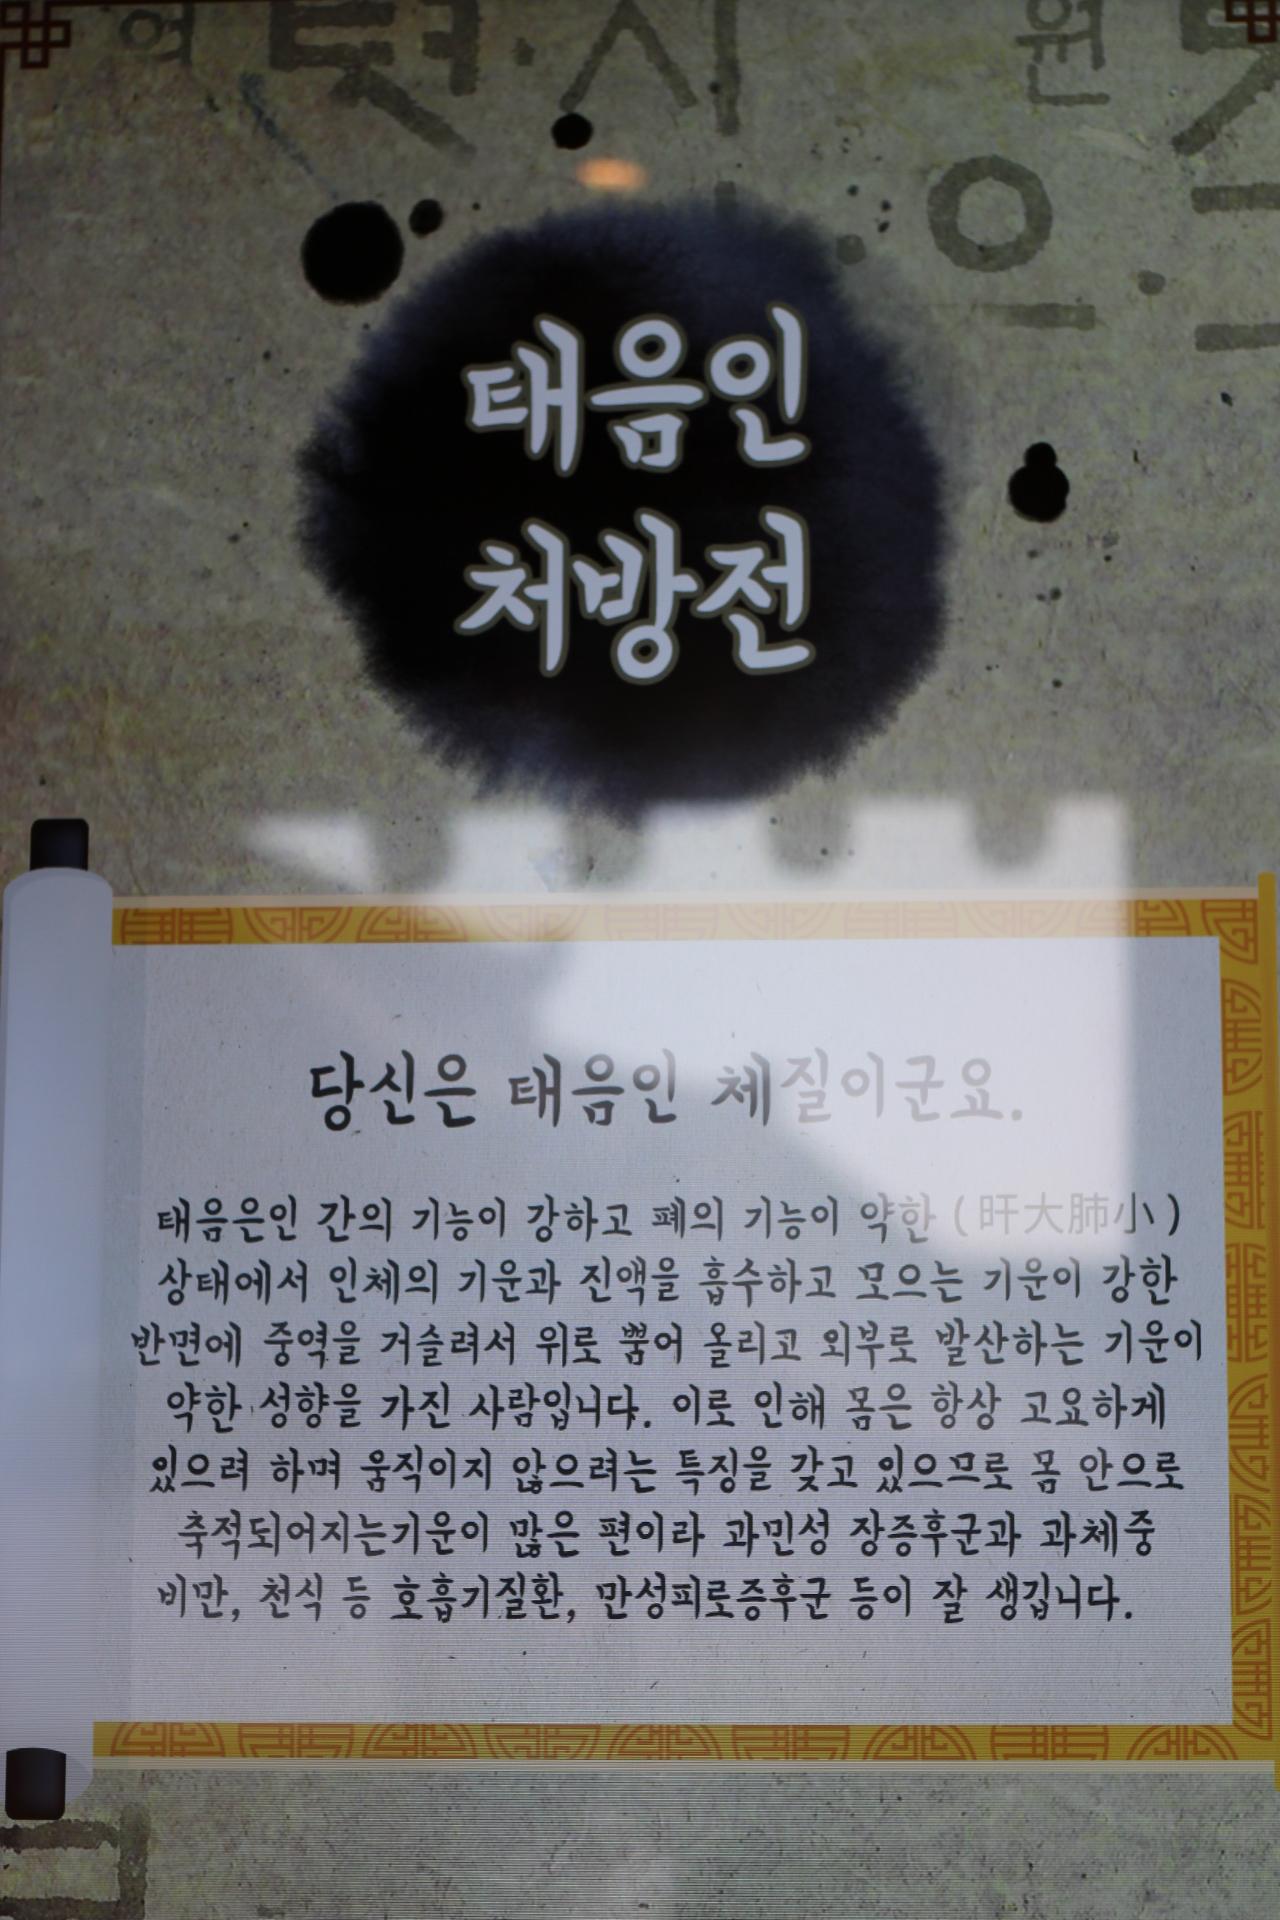 태음인
처방전
당신은 태음인 체질이군요.
태음은인 간의 기능이 강하고 폐의 기능이 약한 (旰大肺小)
상태에서 인체의 기운과 진액을 흡수하고 모으는 기운이 강한
반면에 중역을 거슬려서 위로 뿜어 올리고 외부로 발산하는 기운이
약한 성향을 가진 사람입니다. 이로 인해 몸은 항상 고요하게
있으려 하며 움직이지 않으려는 특징을 갖고 있으므로 몸 안으로
축적되어지는기운이 많은 편이라 과민성 장증후군과 과체중
비만, 천식 등 호흡기질환, 만성피로증후군 등이 잘 생깁니다.